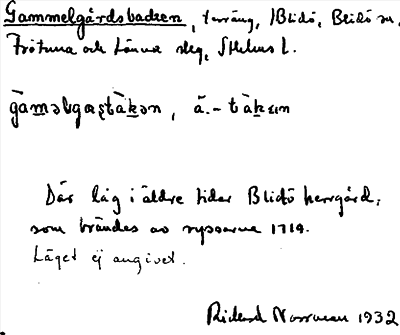 Gammelgårdsbacken, terräng, Blidö, Blidö sn,
Frötuna och Länna slg, Sthlms l.
gàməlgaʂtàkən, ä. - tàkɛn
Där låg i äldre tider Blidö herrgård,
som brändes av ryssarna 1719.
Läget ej angivet.
Rickard 1932